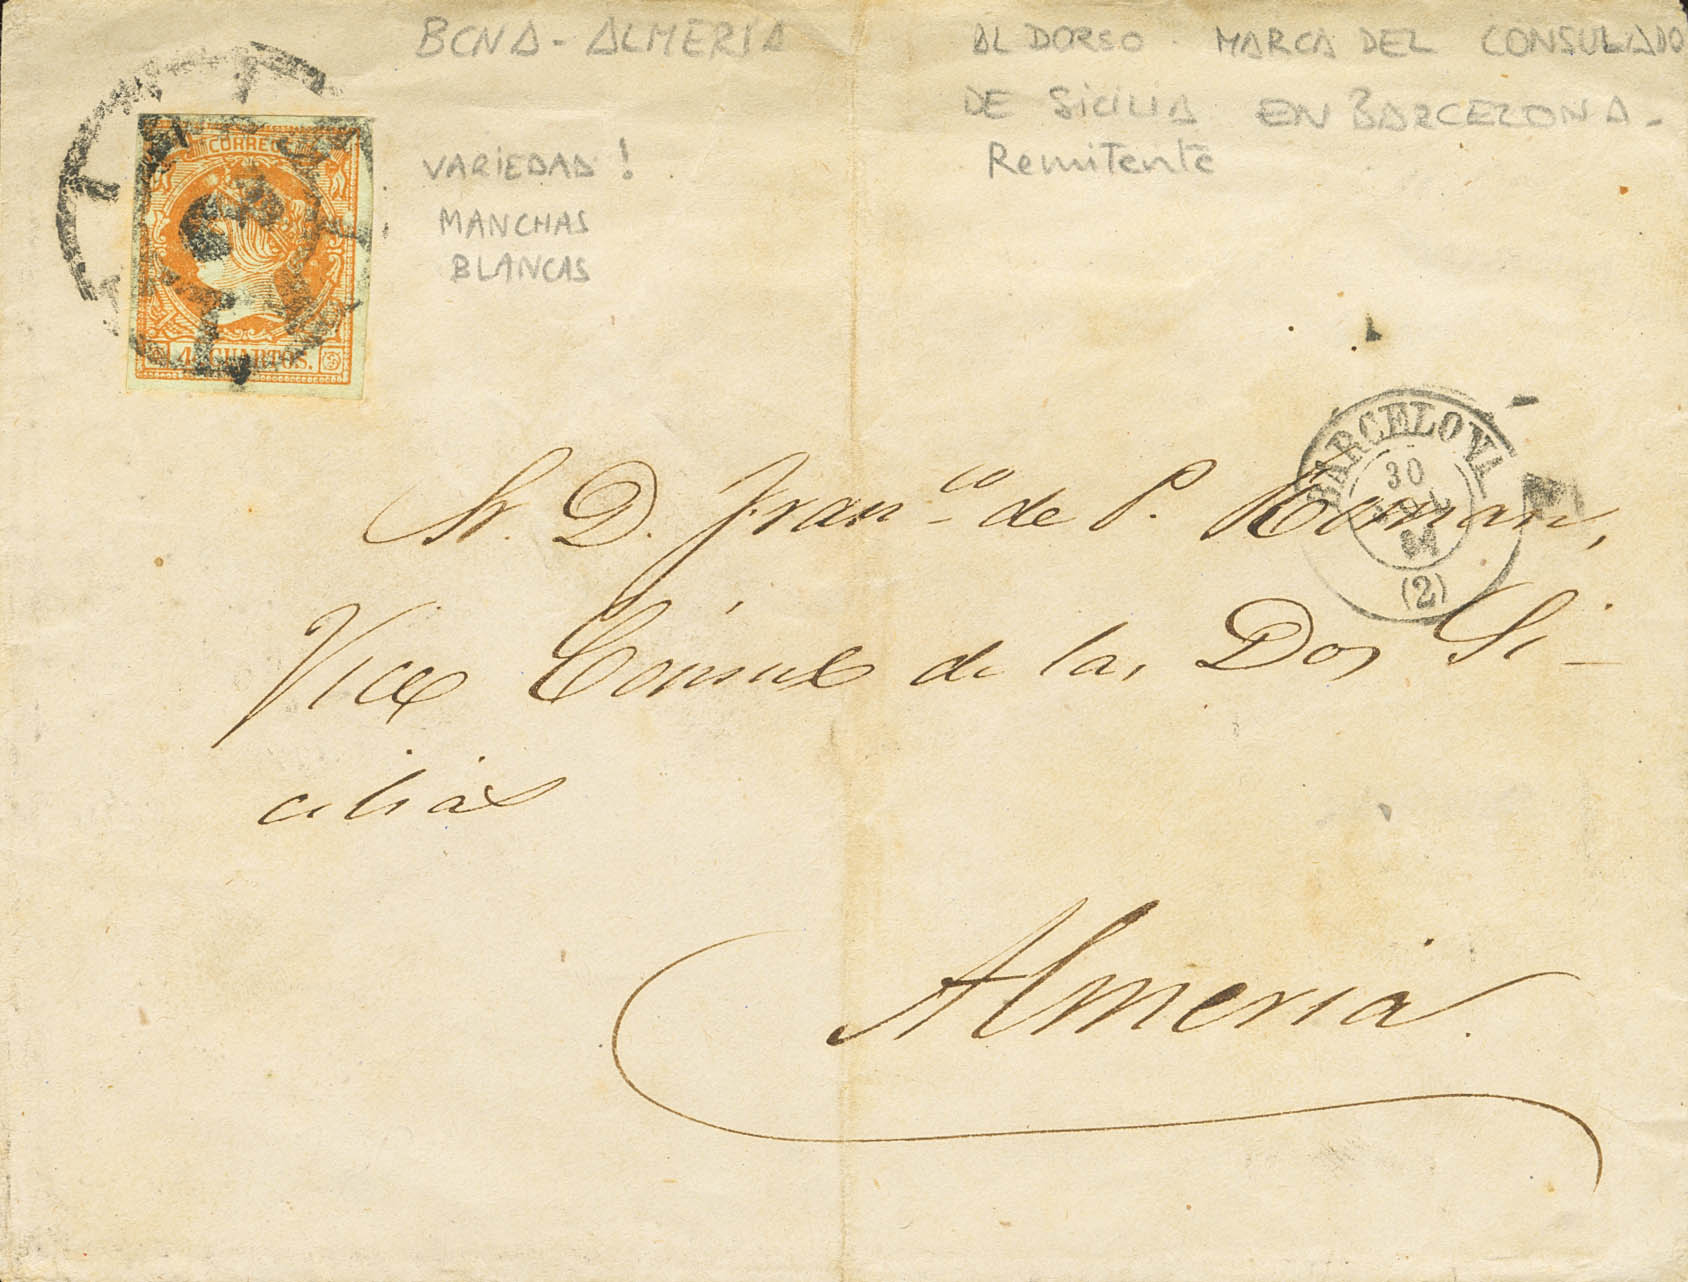 BCNA - ALMERIA
AL DORSO - MARCA DEL CONSULADO
DE SICILIA EN BARCELONA -
Remitente
VARIEDAD!
MANCHAS
BLANCAS
CORREOS
4 CUARTOS.
BARCELONA
30
(2)
Sr. D. Fran.co de P. Roman,
Vice Cónsul de las Dos Si-
cilias
Almeria